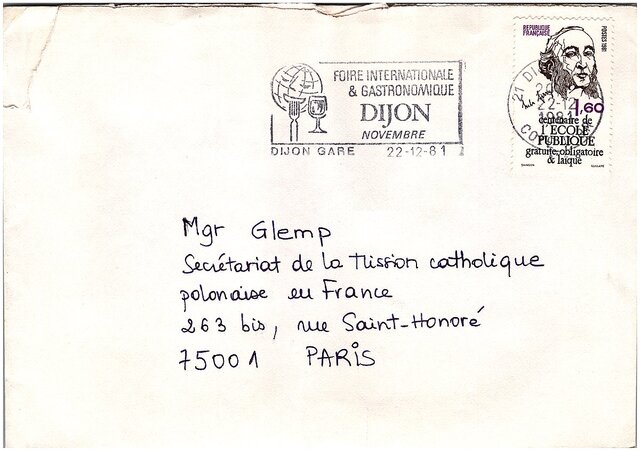 REPUBLIQUE
FRANÇAISE
POSTES 1981
1,60
centenaire de
l'ECOLE
PUBLIQUE
gratuite, obligatoire
& laïque
21 DI
22-12
1981
CO
FOIRE INTERNATIONALE
& GASTRONOMIQUE
DIJON
NOVEMBRE
DIJON GARE 22-12-81
Mgr Glemp
Secrétariat de la Mission catholique
polonaise en France
263 bis, rue Saint-Honoré
75001 PARIS